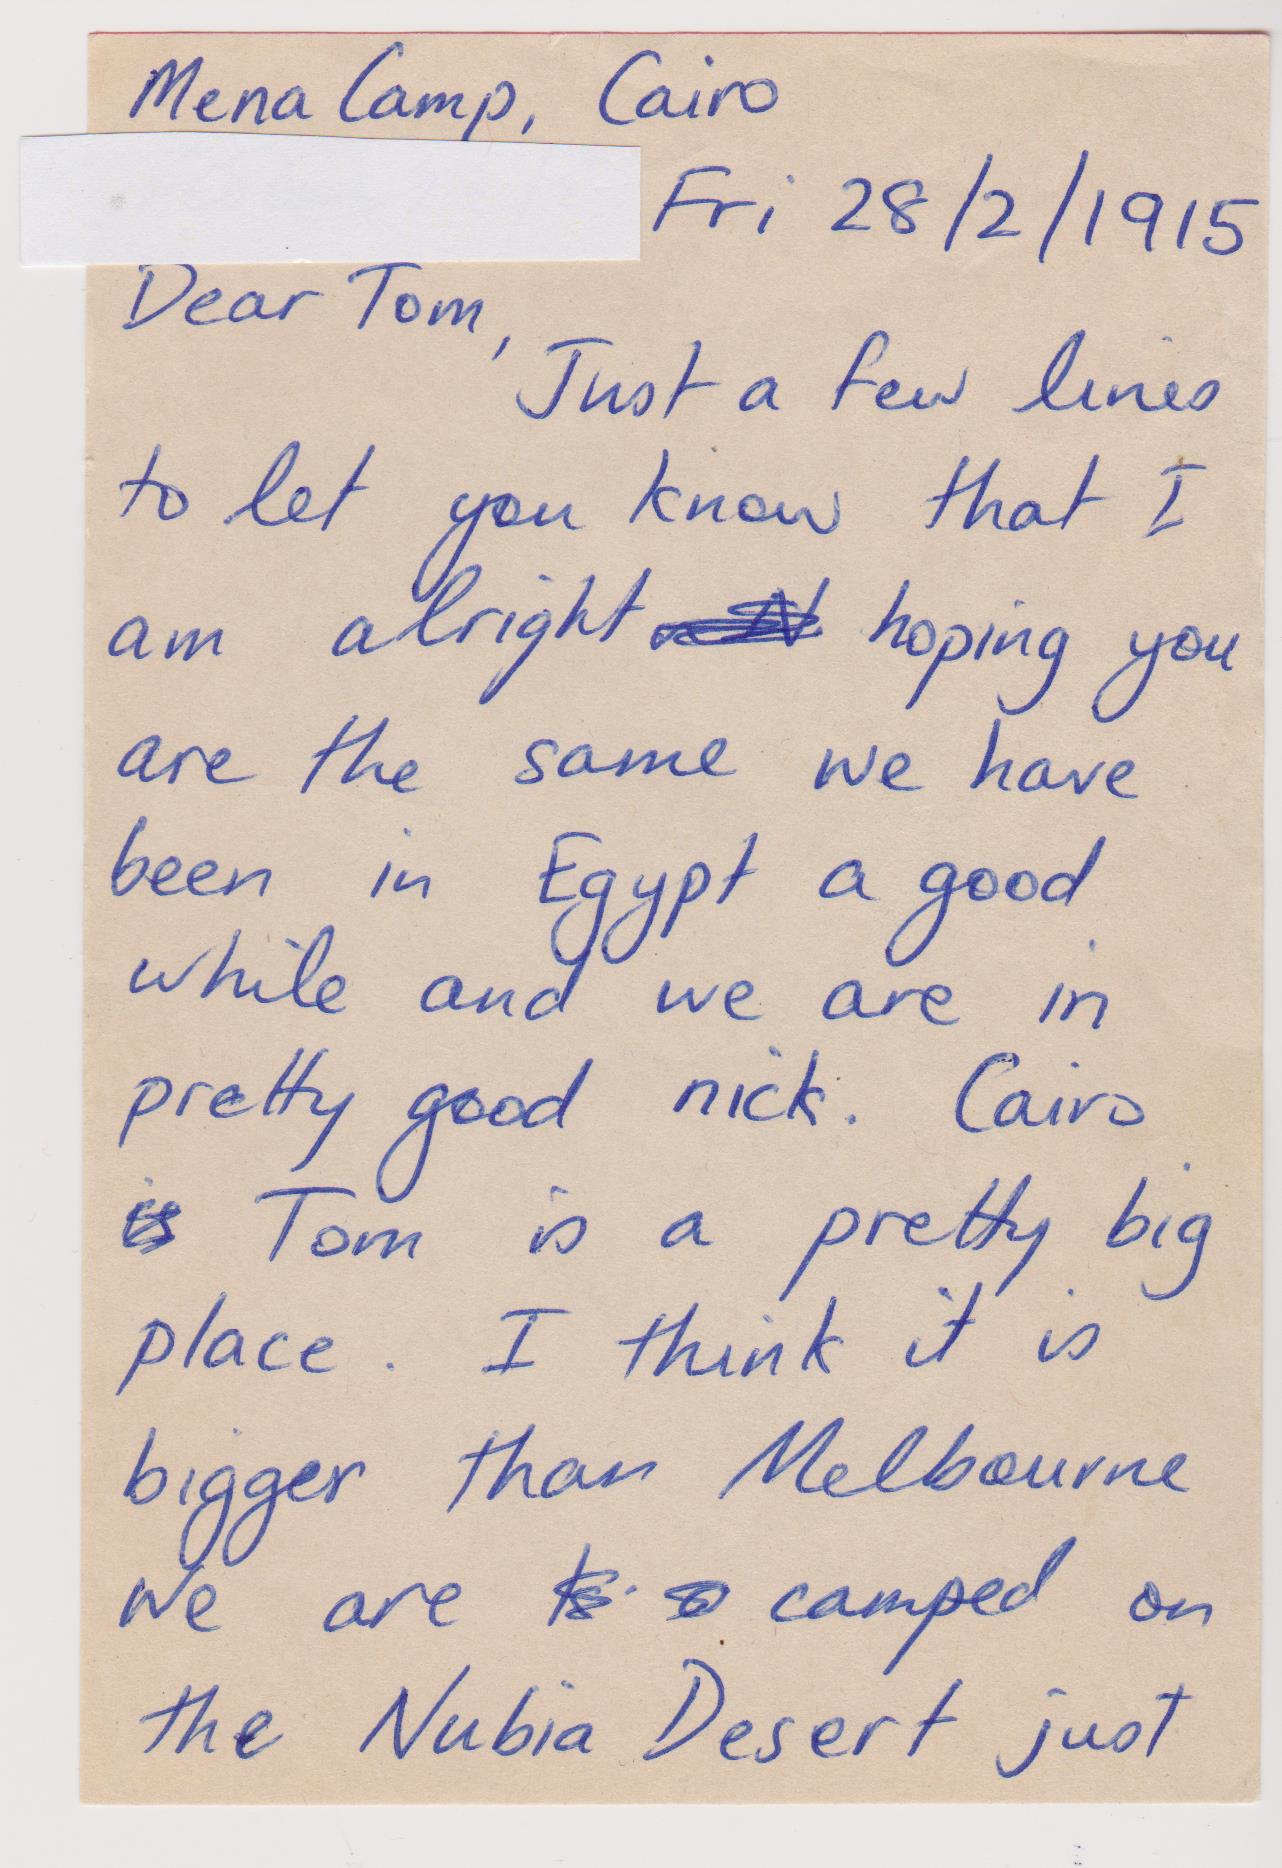 Mena Camp, Cairo
Fri 28/2/1915
Dear Tom,
Just a few lines
to let you know that I
am alright hoping you
are the same we have
been in Egypt a good
while and we are in
pretty good nick. Cairo
is Tom is a pretty big
place. I think it is
bigger than Melbourne
We are camped on
the Nubia Desert just